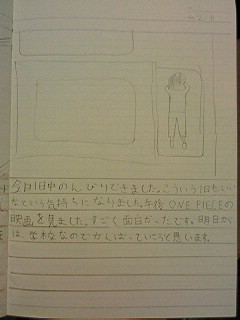 今日1日中のんびりできました。こういう1日もいい
なという気持ちになりました。午後 ONE PIECEの
映画を見ました。すごく面白かったです。明日から
は なのでがんばっていこうと思います。